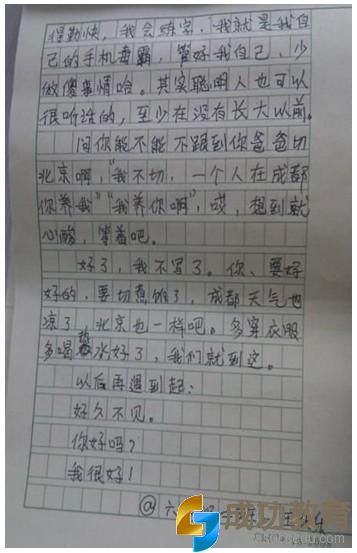 得勤快，我会练字，我就是我自
己的手机毒霸，管好我自己、少
做傻事情哈。其实聪明人也可以
很听话的，至少在没有长大以前。
问你能不能不跟到你爸爸切
北京啊，“我不切，一个人在成都
你养我”“我养你啊”，哎，想到就
心酸，等着吧。
好了，我不写了。你、要好
好的，要切煮饭了，成都天气也
凉了，北京也一样吧。多穿衣服
多喝热水好了，我们就到这。
以后再遇到起：
好久不见。
你好吗？
我很好！
@六
成功教育